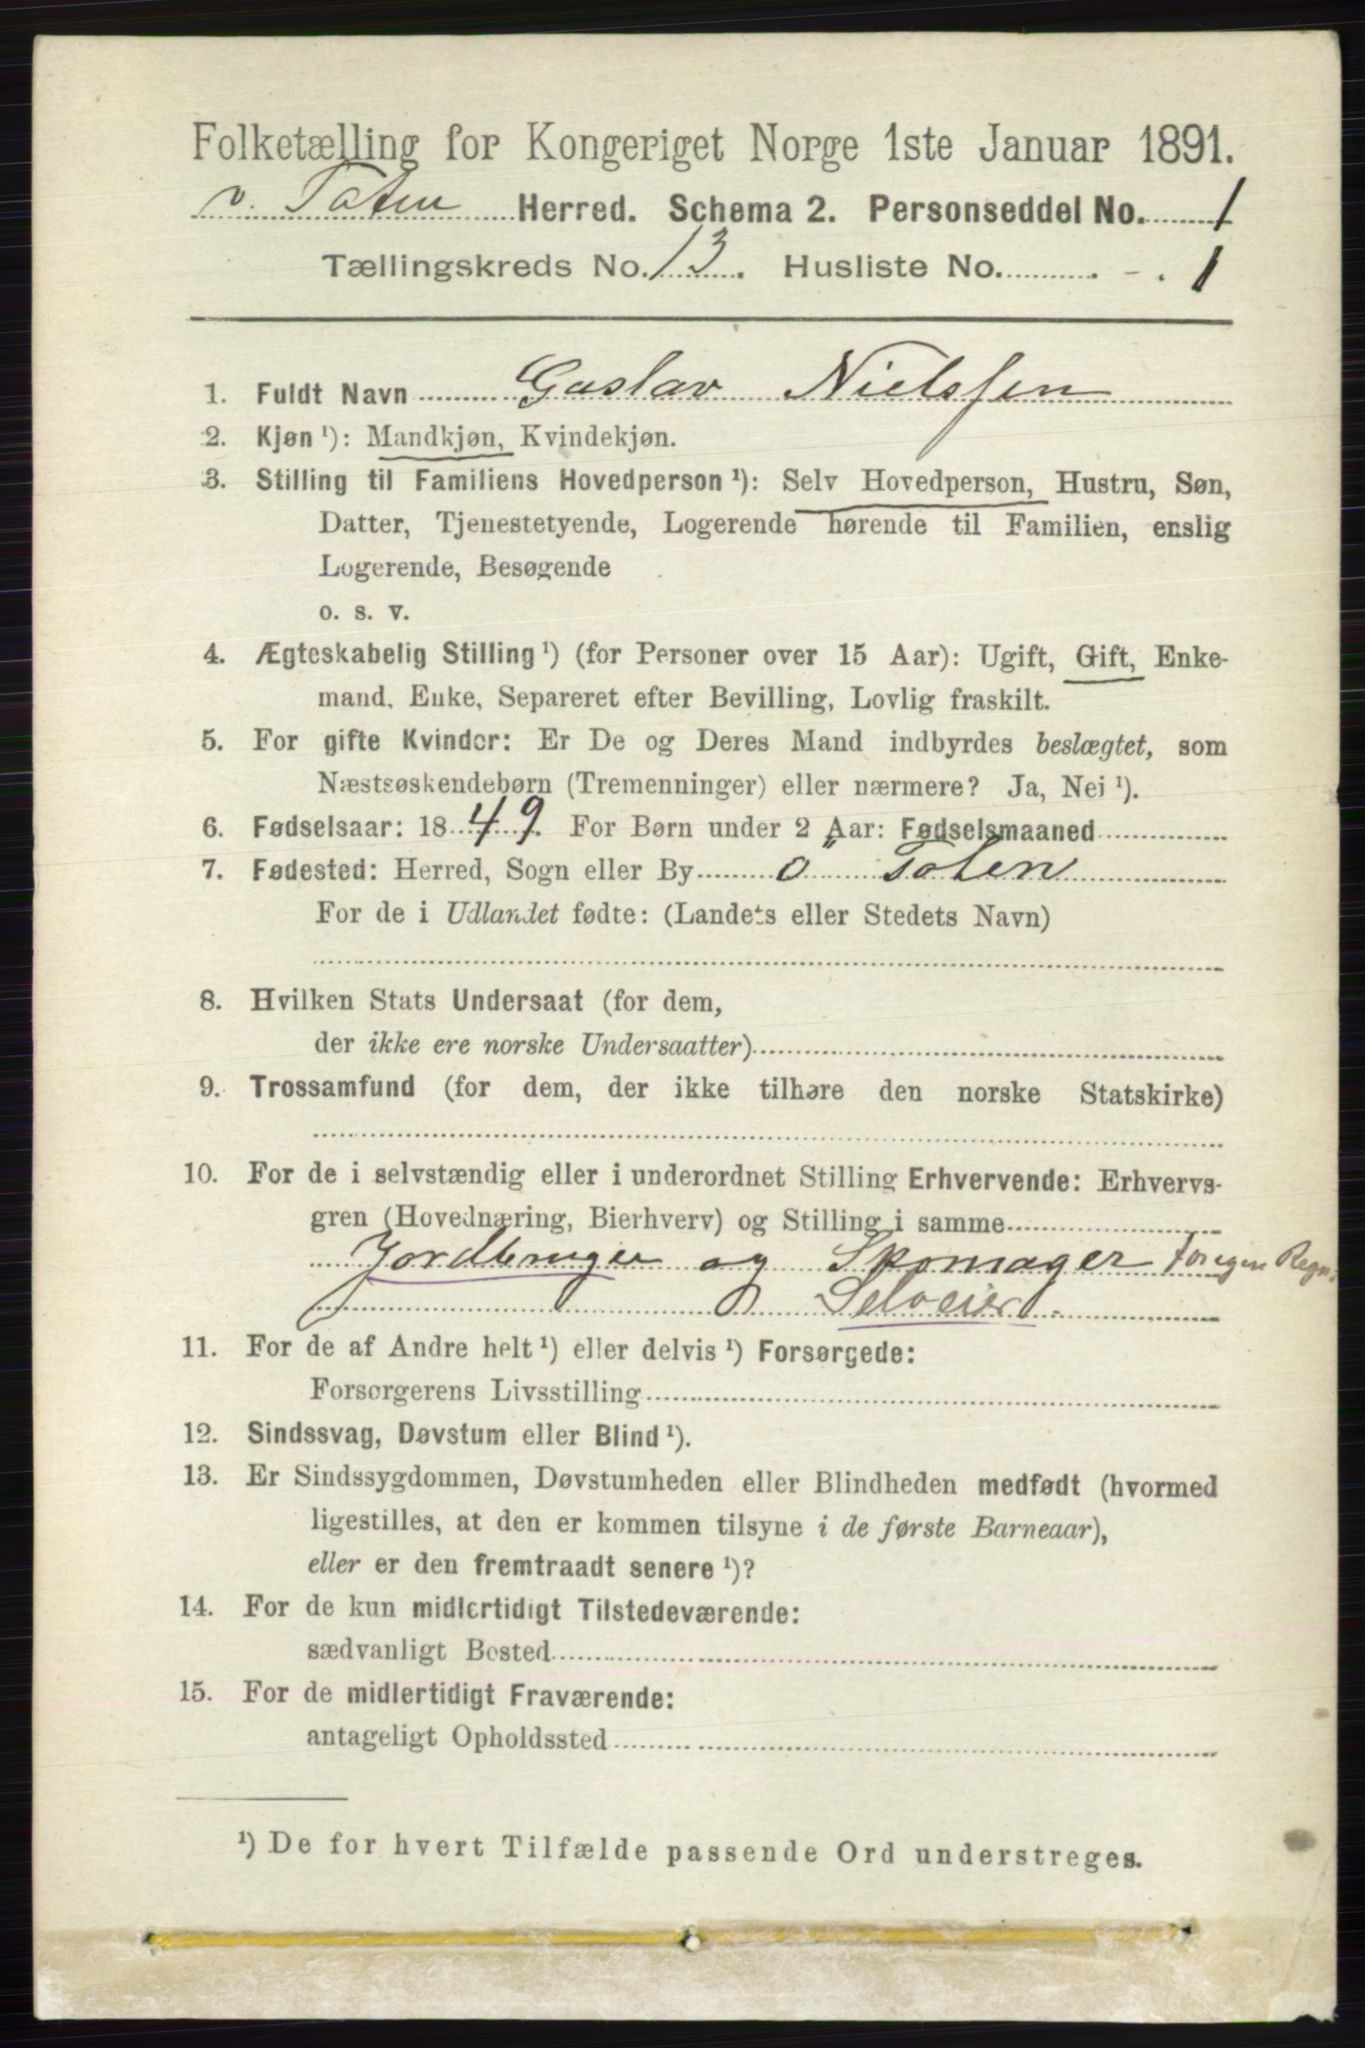 Folketælling for Kongeriget Norge 1ste Januar 1891.
v. Toten Herred. Schema 2. Personseddel No. 1
Tællingskreds No. 13. Husliste No. 1
1. Fuldt Navn Gustav Nielssen
2. Kjøn ¹): Mandkjøn, Kvindekjøn.
3. Stilling til Familiens Hovedperson ¹): Selv Hovedperson, Hustru, Søn,
Datter, Tjenestetyende, Logerende hørende til Familien, enslig
Logerende, Besøgende
o. s. v.
4. Ægteskabelig Stilling ¹) (for Personer over 15 Aar): Ugift, Gift, Enke-
mand, Enke, Separeret efter Bevilling, Lovlig fraskilt.
5. For gifte Kvinder: Er De og Deres Mand indbyrdes beslægtet, som
Næstsøskendebørn (Tremenninger) eller nærmere? Ja, Nei ¹).
6. Fødselsaar: 1849. For Børn under 2 Aar: Fødselsmaaned
7. Fødested: Herred, Sogn eller By Ö Toten
For de i Udlandet fødte: (Landets eller Stedets Navn)
8. Hvilken Stats Undersaat (for dem,
der ikke ere norske Undersaatter)
9. Trossamfund (for dem, der ikke tilhøre den norske Statskirke)
10. For de i selvstændig eller i underordnet Stilling Erhvervende: Erhvervs-
gren (Hovednæring, Bierhverv) og Stilling i samme
Jordbruger og Skomager for egen Regn.
Selveier.
11. For de af Andre helt ¹) eller delvis ¹) Forsørgede:
Forsørgerens Livsstilling
12. Sindssvag, Døvstum eller Blind ¹).
13. Er Sindssygdommen, Døvstumheden eller Blindheden medfødt (hvormed
ligestilles, at den er kommen tilsyne i de første Barneaar),
eller er den fremtraadt senere ¹)?
14. For de kun midlertidigt Tilstedeværende:
sædvanligt Bosted
15. For de midlertidigt Fraværende:
antageligt Opholdssted
¹) De for hvert Tilfælde passende Ord understreges.